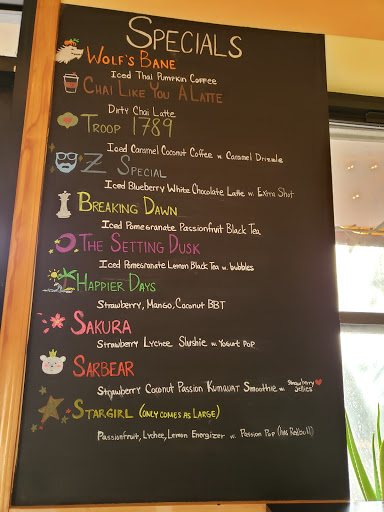 SPECIALS
WOLF'S BANE
Iced Thai Pumpkin Coffee
CHAI LIKE YOU A LATTE
Dirty Chai Latte
TROOP 1789
Iced Caramel Coconut Coffee w. Caramel Drizzle
Z SPECIAL
Iced Blueberry White Chocolate Latte w. Extra Shot
BREAKING DAWN
Iced Pomegranate Passionfruit Black Tea
THE SETTING DUSK
Iced Pomegranate Lemon Black Tea w. bubbles
HAPPIER DAYS
Strawberry, Mango, Coconut BBT
SAKURA
Strawberry Lychee Slushie w. Yogurt POP
SARBEAR
Strawberry Coconut Passion Kumquat Smoothie w. Strawberry Jellies
STARGIRL (ONLY COMES AS LARGE)
Passionfruit, Lychee, Lemon Energizer w. Passion Pop (has Redbull)